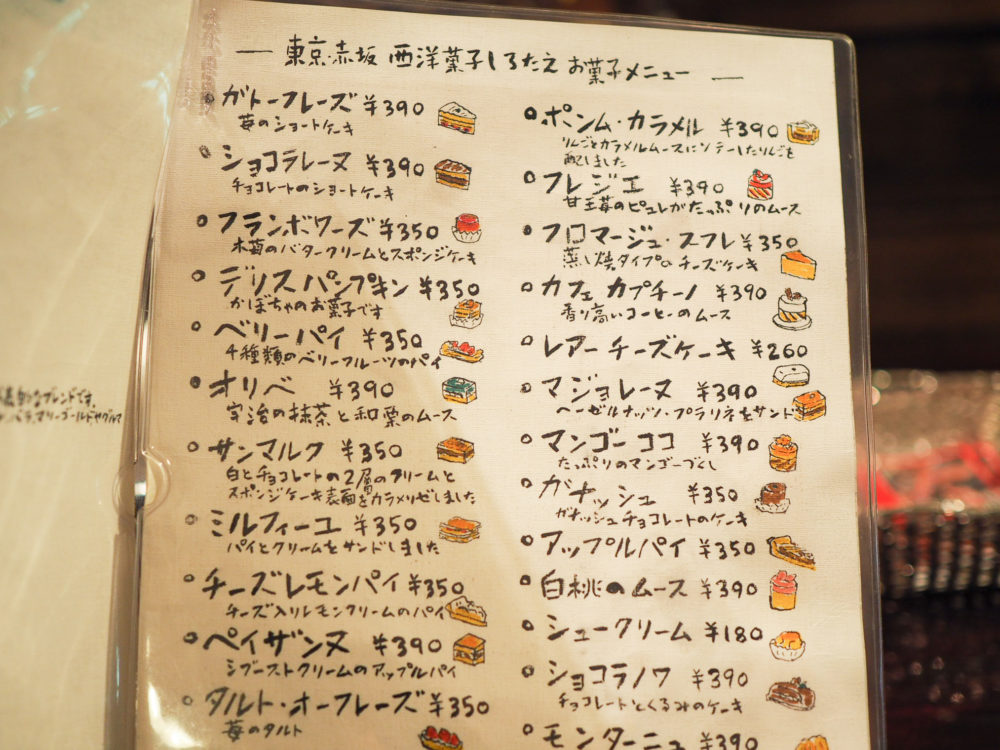 東京・赤坂 西洋菓子しろたえ お菓子メニュー
ガトーフレーズ ¥390
苺のショートケーキ
ショコラレーヌ ¥390
チョコレートのショートケーキ
フランボワーズ ¥350
木苺のバタークリームとスポンジケーキ
デリス パンプキン ¥350
かぼちゃのお菓子です
ベリーパイ ¥350
4種類のベリーフルーツのパイ
オリベ ¥390
宇治の抹茶と和栗のムース
サンマルク ¥350
白とチョコレートの2層のクリームと
スポンジケーキ表面をカラメリゼしました
ミルフィーユ ¥350
パイとクリームをサンドしました
チーズレモンパイ ¥350
チーズ入りレモンクリームのパイ
ペイザンヌ ¥390
シブーストクリームのアップルパイ
タルト・オーフレーズ ¥350
苺のタルト
ポンム・カラメル ¥390
りんごとカラメルムースにソテーしたりんごを
配しました
フレジエ ¥390
甘王苺のピュレがたっぷりのムース
フロマージュ・スフレ ¥350
蒸し焼タイプのチーズケーキ
カフェ カプチーノ ¥390
香り高いコーヒーのムース
レアーチーズケーキ ¥260
マジョレーヌ ¥390
ヘーゼルナッツ・プラリネをサンド
マンゴーココ ¥390
たっぷりのマンゴーづくし
ガナッシュ ¥350
ガナッシュチョコレートのケーキ
アップルパイ ¥350
白桃のムース ¥390
シュークリーム ¥180
ショコラノワ ¥390
チョコレートとくるみのケーキ
モンターニュ ¥390
なブレンドです。
マリーゴールドヤグルマ